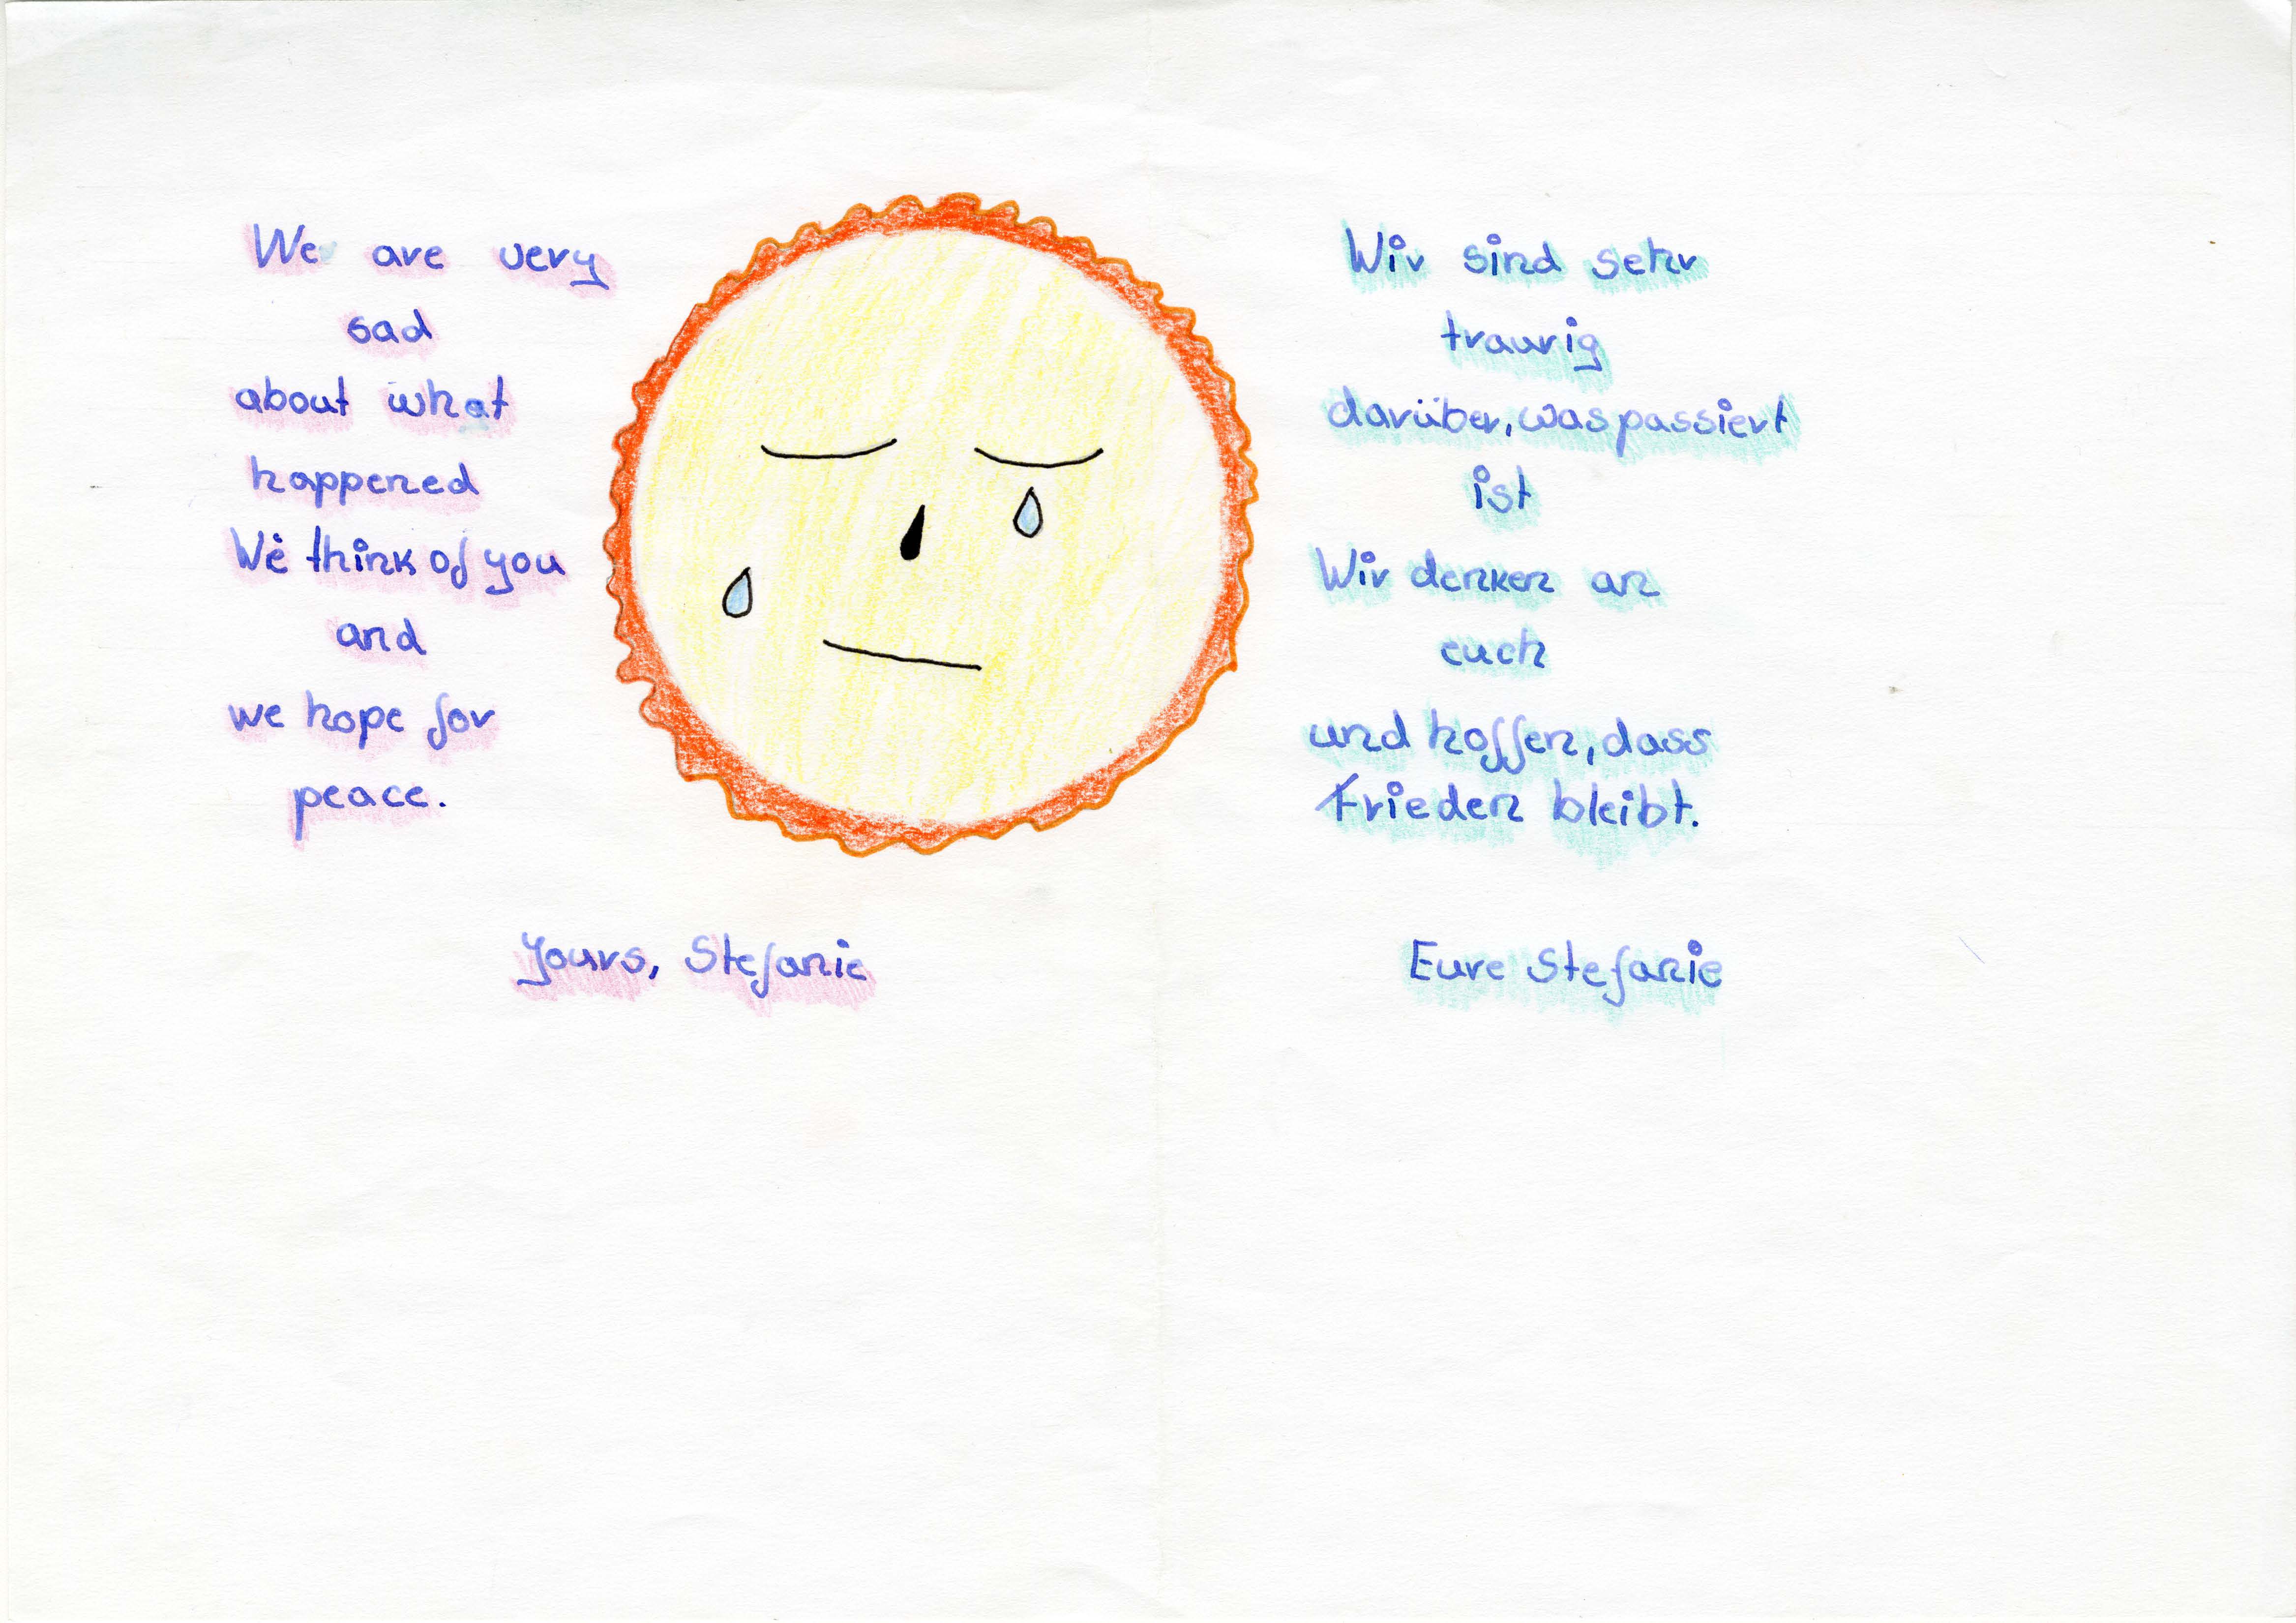 We are very
sad
about what
happened
We think of you
and
we hope for
peace.
Yours, Stefanie
Wir sind sehr
traurig
darüber, was passiert
ist
Wir denken an
euch
und hoffen, dass
Frieden bleibt.
Eure Stefanie